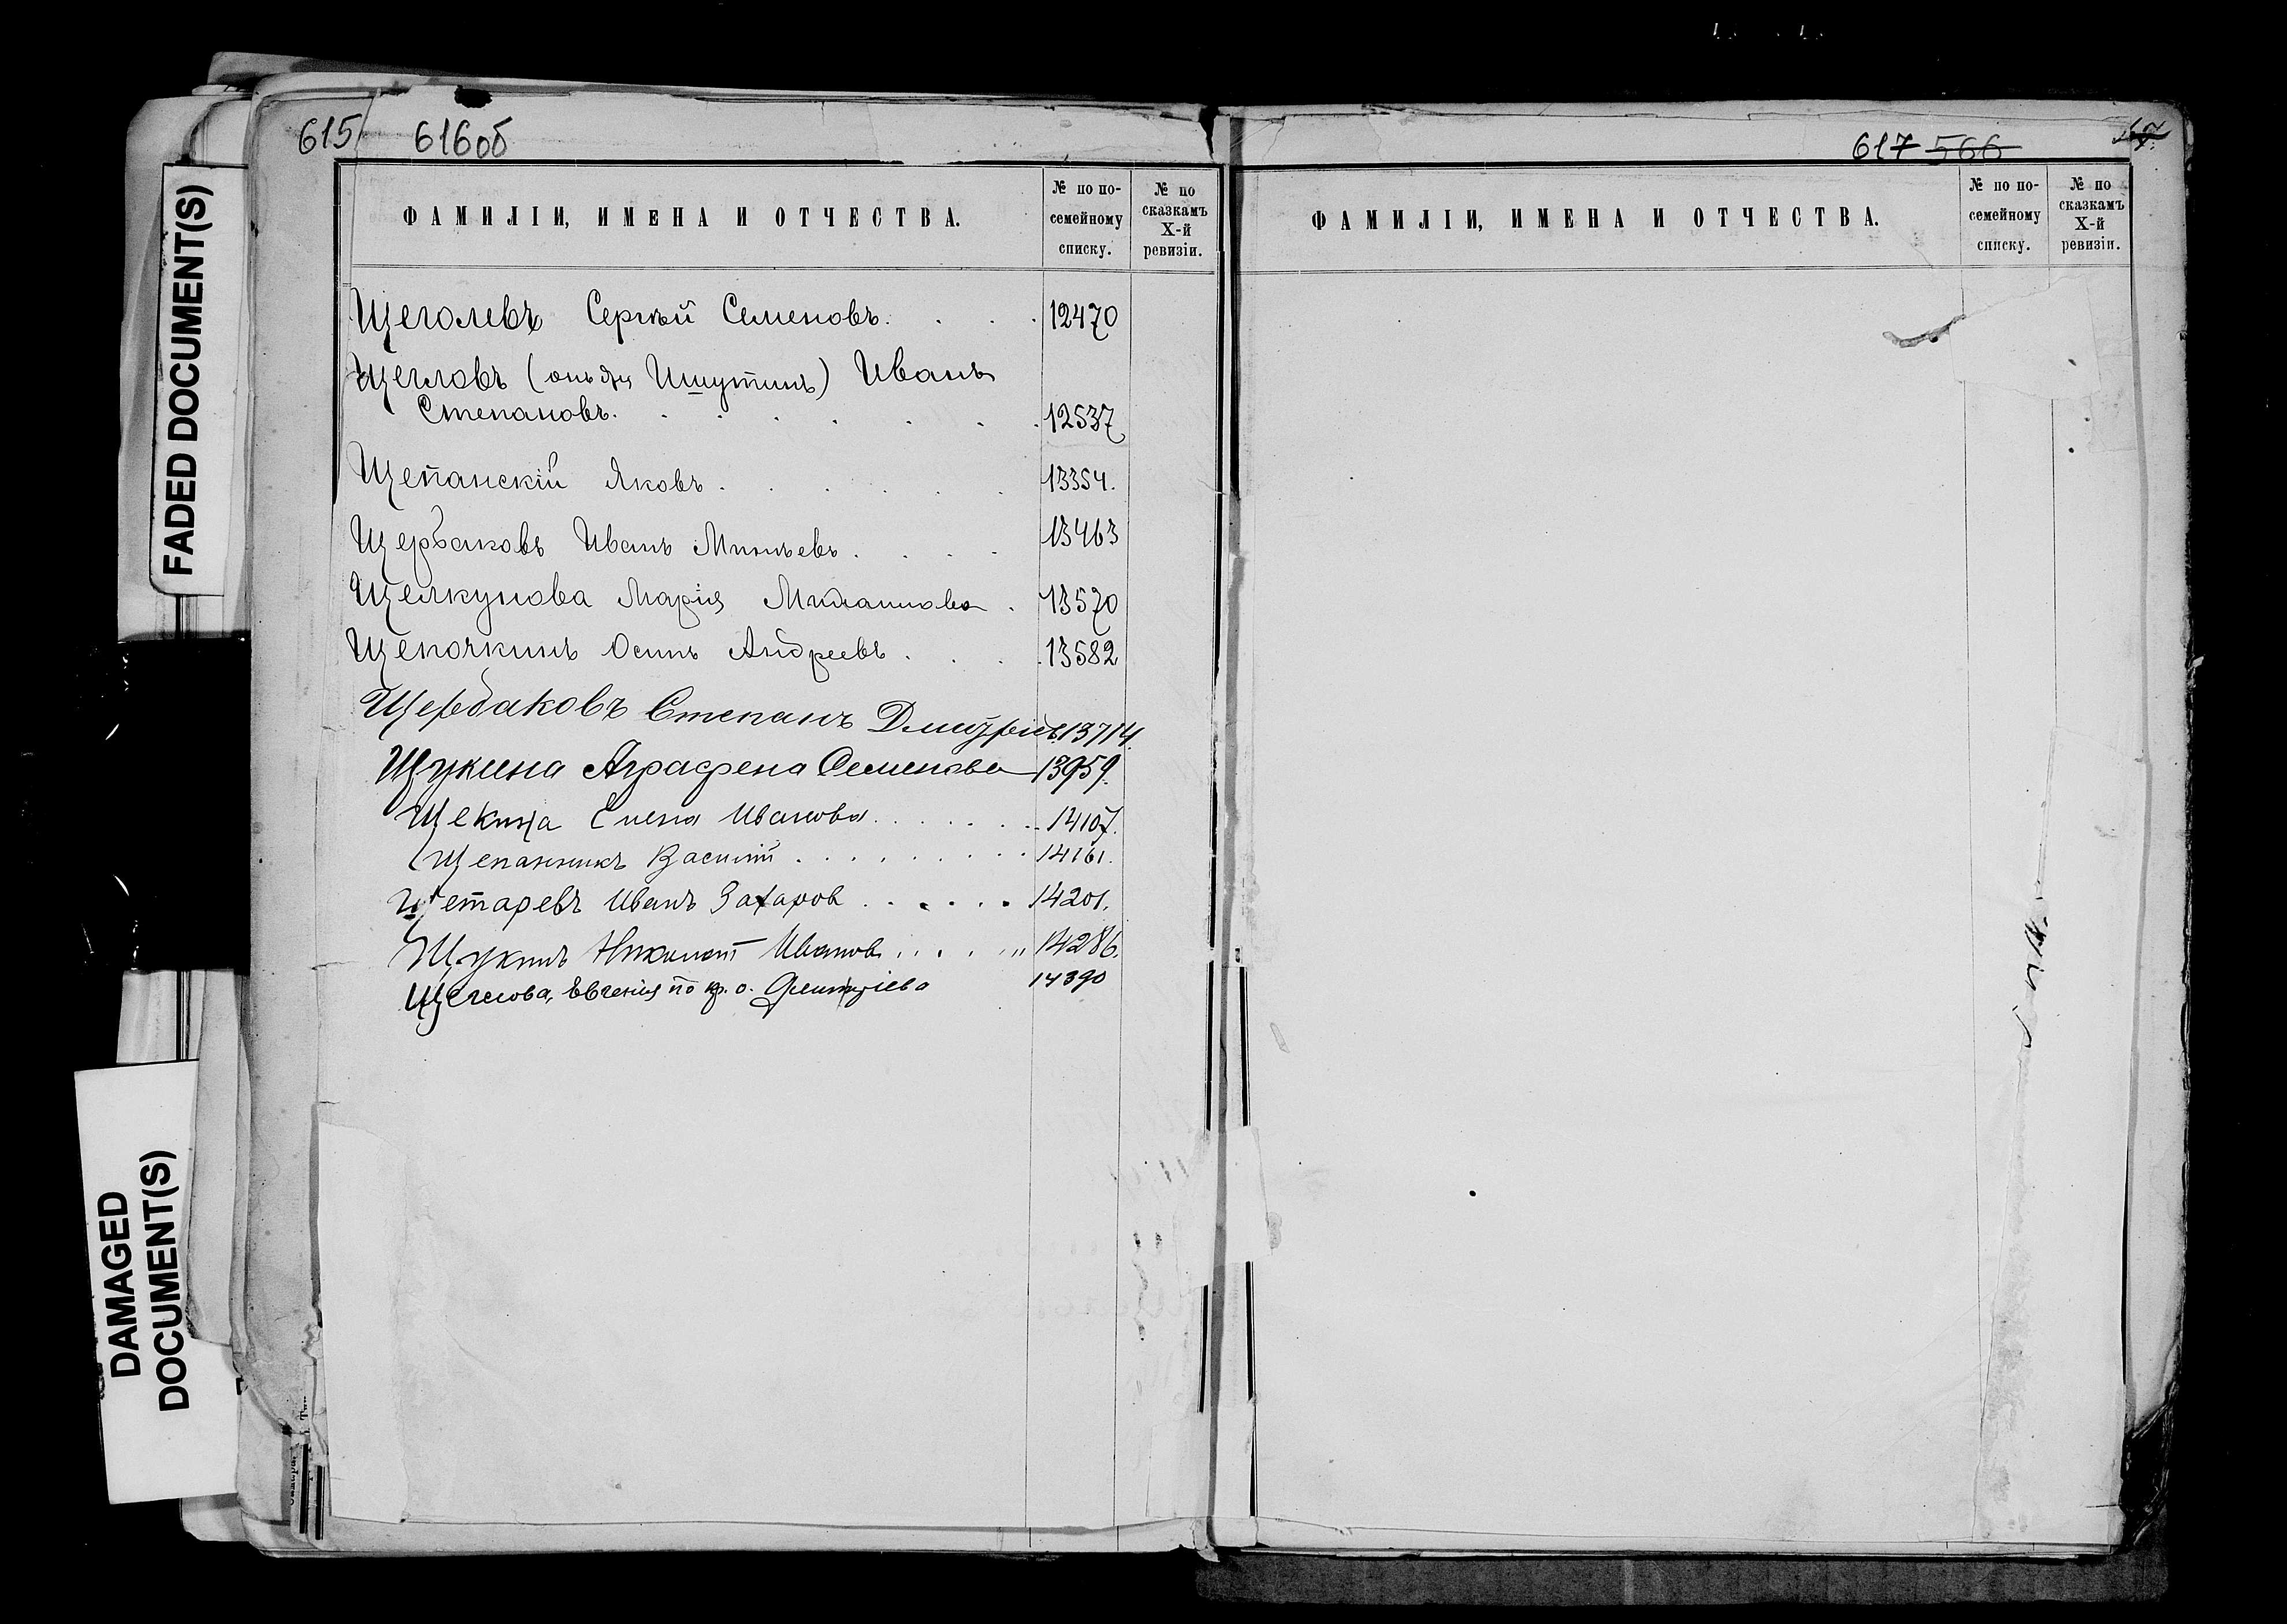 615 616об
ФАМИЛІИ, ИМЕНА И ОТЧЕСТВА.
№ по по-
семейному
списку.
№ по
сказкамъ
X-й
ревизіи.
Щеголевъ Сергѣй Семеновъ. 12470
Щегловъ (онъ же Ишутинъ) Иванъ
Степановъ. 12537
Щепанскій Яковъ. 13354.
Щербаковъ Иванъ Минѣевъ. 13463
Щелкунова Марія 13570
Щепочкинъ Осипъ Андреевъ. 13582
Щербаковъ Степанъ Дмитріев. 13714.
Щукина Аграфена Семенова 13959.
Щекина Елена Иванова 14107.
Щепанникъ Василій 14161.
Щетаревъ Иванъ Захаров 14201.
Щукинъ Николай Иванов 14286.
Щеглова, Евгенія по кр. о. 14390
617 566
ФАМИЛІИ, ИМЕНА И ОТЧЕСТВА.
№ по по-
семейному
списку.
№ по
сказкамъ
X-й
ревизіи.
FADED DOCUMENT(S)
DAMAGED
DOCUMENT(S)